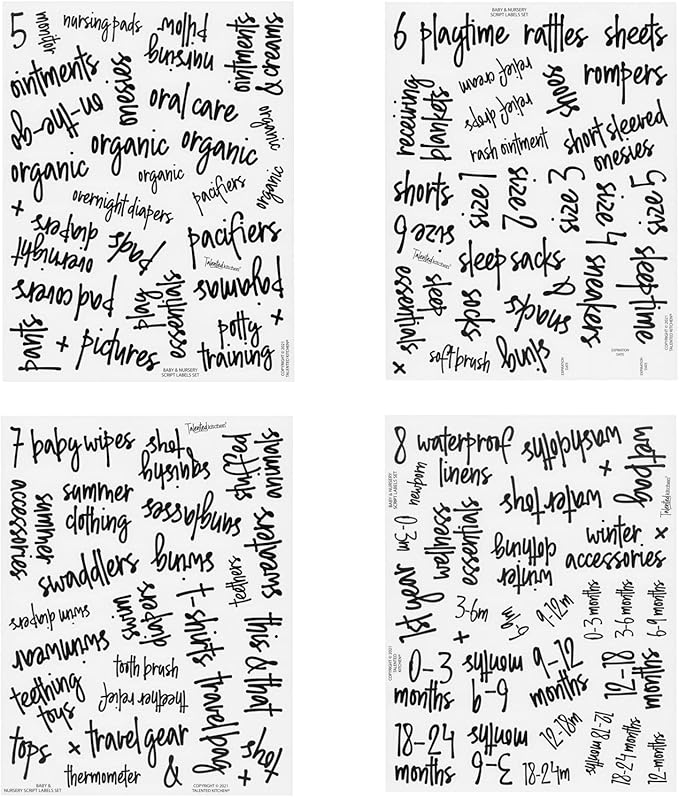 5
monitor
nursing pads
nursing
pillow
ointments
& creams
ointments
onesies
on-the-go
oral care
organic
organic
organic
organic
organic
organic
pacifiers
overnight diapers
+
overnight
diapers
pads
pacifiers
Talented Kitchen®
pad covers
play
essentials
pajamas
+
pants
+
pictures
potty
training
BABY & NURSERY
SCRIPT LABELS SET
COPYRIGHT © 2021
TALENTED KITCHEN®
BABY & NURSERY
SCRIPT LABELS SET
6
playtime
rattles
sheets
receiving
blankets
relief cream
relief drops
rash ointment
shoes
rompers
short sleeved
onesies
shorts
size 1
size 2
size 3
size 4
size 5
size 6
Talented Kitchen®
sleep sacks
sleep
essentials
+
socks
&
snacks
sneakers
sleeptime
soft brush
sling
EXPIRATION
DATE
EXPIRATION
DATE
EXPIRATION
DATE
COPYRIGHT © 2021
TALENTED KITCHEN®
7
baby wipes
squishy
toys
Talented Kitchen®
stuffed
animals
accessories
summer
summer
clothing
sunglasses
swaddlers
swing
sweaters
swim diapers
swim
diapers
t-shirts
teethers
this & that
swimwear
tooth brush
teething
toys
theether relief
travel bag
tops
+
travel gear
toys
+
thermometer
&
BABY &
NURSERY SCRIPT LABELS SET
COPYRIGHT © 2021
TALENTED KITCHEN®
BABY & NURSERY
SCRIPT LABELS SET
8
newborn
waterproof
linens
washcloths
+
wetbag
Talented Kitchen®
0-3m
wellness
essentials
water toys
winter
clothing
+
winter
accessories
1st year
3-6m
6-9m
9-12m
0-3 months
3-6 months
6-9 months
+
COPYRIGHT © 2021
TALENTED
KITCHEN®
0-3
months
6-9
months
9-12
months
12-18
months
18-24
months
3-6
months
12-18m
18-24m
12-18 months
18-24 months
12-months